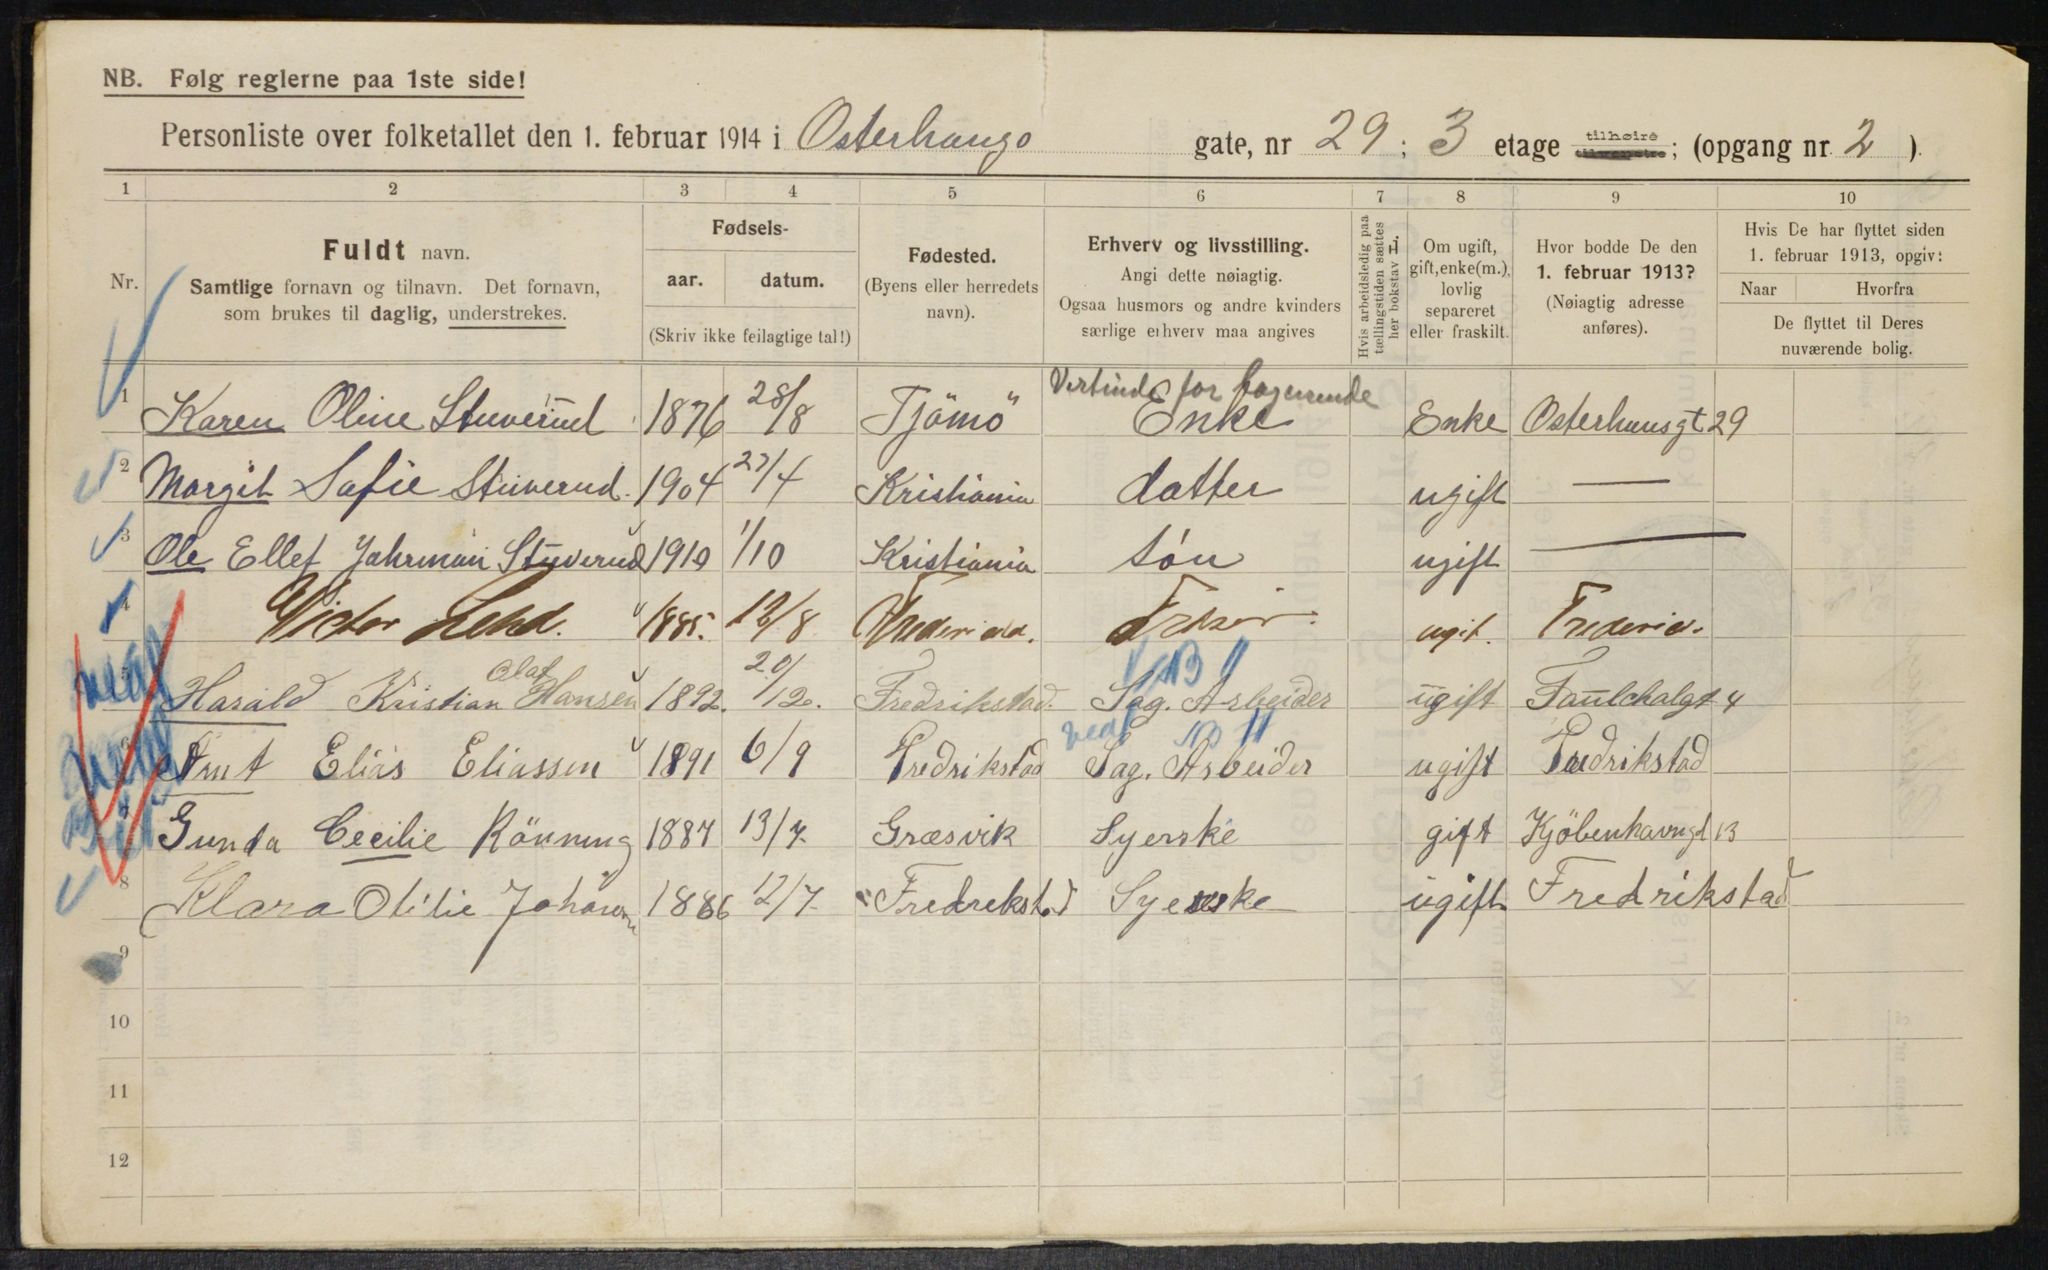 NB. Følg reglerne paa 1ste side!
Personliste over folketallet den 1. februar 1914 i Osterhausg gate, nr 29 ; 3 etage tilhøire tilvenstre; (opgang nr 2 ).
1 2 3 4 5 6 7 8 9 10
Nr.
Fuldt navn.
Samtlige fornavn og tilnavn. Det fornavn,
som brukes til daglig, understrekes.
Fødsels-
aar. datum.
(Skriv ikke feilagtige tal!)
Fødested.
(Byens eller herredets
navn).
Erhverv og livsstilling.
Angi dette nøiagtig.
Ogsaa husmors og andre kvinders
særlige erhverv maa angives
Hvis arbeidsledig paa
tællingstiden sættes
her bokstav H.
Om ugift,
gift, enke(m.),
lovlig
separeret
eller fraskilt.
Hvor bodde De den
1. februar 1913?
(Nøiagtig adresse
anføres).
Hvis De har flyttet siden
1. februar 1913, opgiv:
Naar Hvorfra
De flyttet til Deres
nuværende bolig.
Vertinde for logerende
1 Karen Oline Stuverud 1876 28/8 Tjömö Enke Enke Osterhausgt 29
2 Margit Sofie Stuverud 1904 27/4 Kristiania datter ugift —
3 Ole Ellef Jahrman Stuverud 1910 1/10 Kristiania søn ugift —
4 Victor 1885. 12/8 ugift.
Olaf
5 Harald Kristian Hansen 1892. 20/12. Fredrikstad. Sag. Arbeider ugift 4
6 Arnt Elias Eliassen 1891 6/9 Fredrikstad Sag. Arbeider ugift Fredrikstad
7 Gunda Cecilie Rönning 1887 13/7 Græsvik Syerske gift Kjöbenhavngt 13
8 Klara Otilie Johansen 1886 12/7 Fredrekstad Syerske ugift Fredrikstad
9
10
11
12